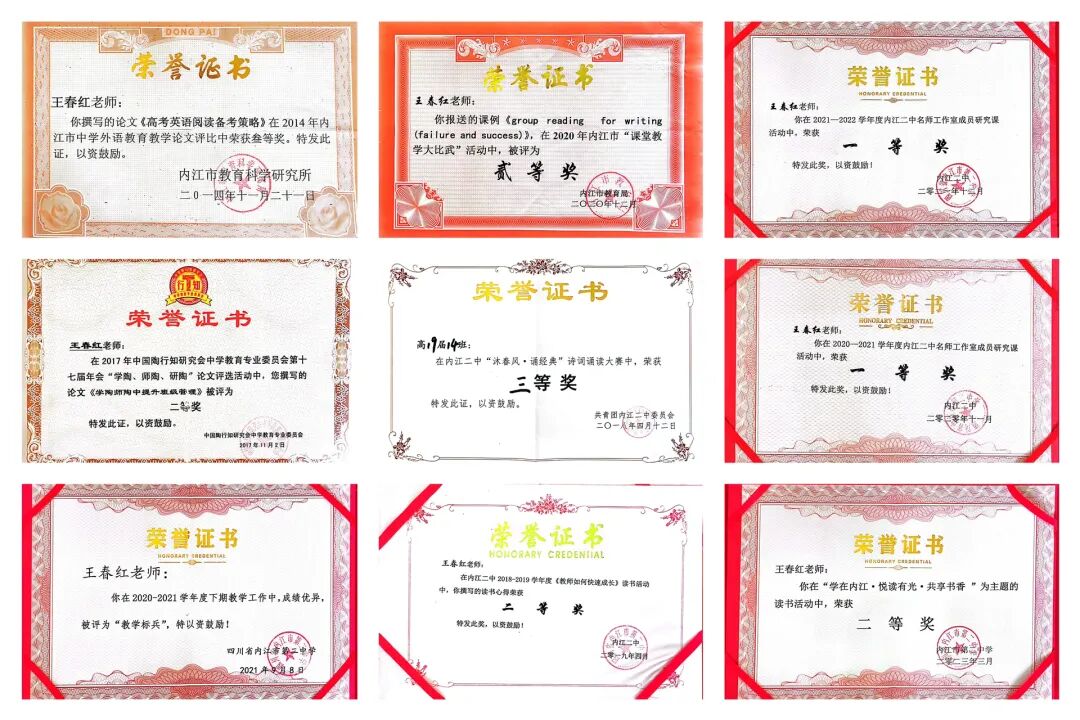 DONG PAI
荣誉证书
王春红老师：
你撰写的论文《高考英语阅读备考策略》在2014年内
江市中学外语教育教学论文评比中荣获叁等奖。特发此
证，以资鼓励。
内江市教育科学研究所
二0一四年十一月二十一日
荣誉证书
王春红老师：
你报送的课例《group reading for writing
(failure and success)》，在2020年内江市“课堂教
学大比武”活动中，被评为
贰等奖
内江市教育局
二〇二〇年十二月
荣誉证书
HONORARY CREDENTIAL
王春红老师：
你在2021—2022学年度内江二中名师工作室成员研究课
活动中，荣获
一等奖
特发此奖，以资鼓励！
内江二中
二零二一年十二月
行知
荣誉证书
王春红老师：
在2017年中国陶行知研究会中学教育专业委员会第十
七届年会“学陶、师陶、研陶”论文评选活动中，您撰写的
论文《学陶师陶中提升班级管理》被评为
二等奖
特发此证，以资鼓励。
中国陶行知研究会中学教育专业委员会
2017年11月2日
荣誉证书
高19届14班：
在内江二中“沐春风·诵经典”诗词诵读大赛中，荣获
三等奖
特发此证，以资鼓励。
共青团内江二中委员会
二〇一八年四月十二日
荣誉证书
HONORARY CREDENTIAL
王春红老师：
你在2020—2021学年度内江二中名师工作室成员研究课
活动中，荣获
一等奖
特发此奖，以资鼓励！
内江二中
二零二零年十一月
荣誉证书
HONORARY CREDENTIAL
王春红老师：
你在2020-2021学年度下期教学工作中，成绩优异，
被评为“教学标兵”，特以资鼓励！
四川省内江市第二中学
2021年9月8日
荣誉证书
HONORARY CREDENTIAL
王春红老师：
在内江二中2018-2019学年度《教师如何快速成长》读书活动
中，你撰写的读书心得荣获
二等奖
特发此奖，以资鼓励！
内江二中
二零一九年四月
荣誉证书
HONORARY CREDENTIAL
王春红老师：
你在“学在内江·悦读有光·共享书香”为主题的
读书活动中，荣获
二等奖
内江市第二中学
二零二三年三月